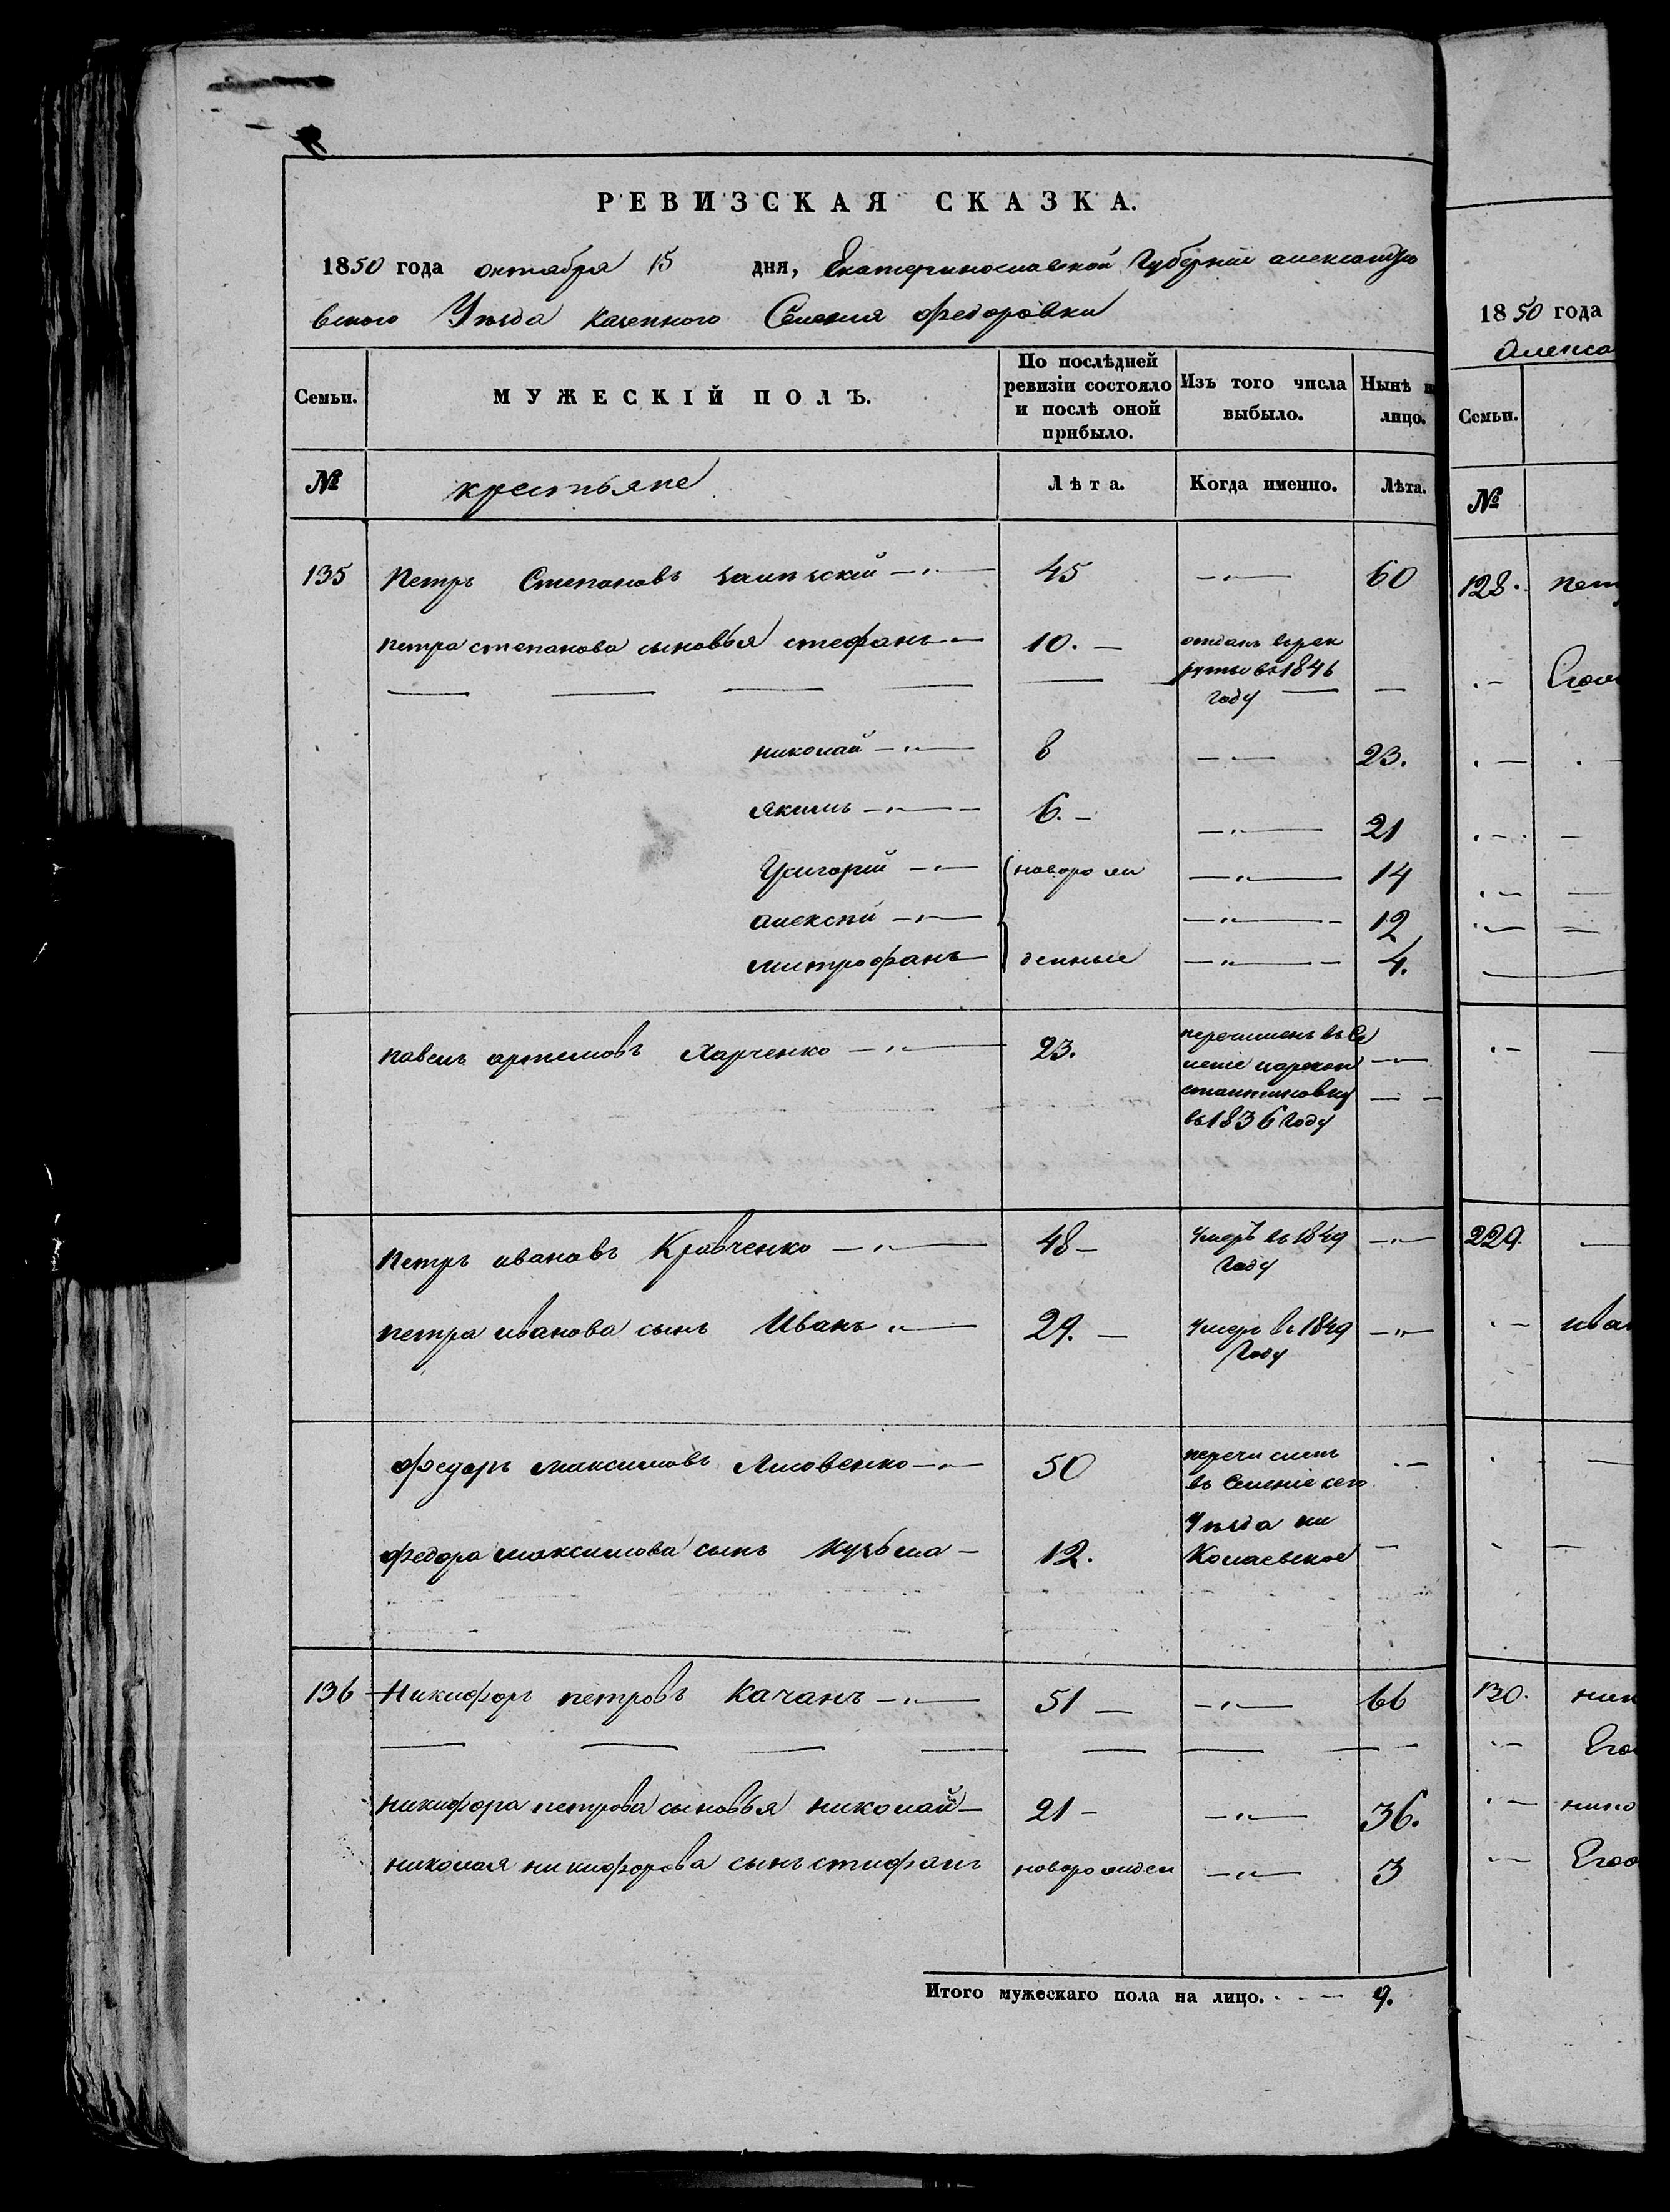 РЕВИЗСКАЯ СКАЗКА.
1850 года октября 15 дня, Екатеринославской Губерніи александро
вского Уезда казенного Селения федоровки
Семьи. МУЖЕСКІЙ ПОЛЪ. По послѣдней ревизіи состояло и послѣ оной прибыло. Изъ того числа выбыло. Нынѣ н лицо.
№ крестьяне Лѣта. Когда именно. Лѣта.
135 Петръ Степановъ 45 60
петра степанова сыновья стефанъ 10. отданъ врек
руты въ 1846
году
николай 8 23.
якимъ 6. 21
Григорій новорож 14
алексѣй 12
митрофанъ денные 4.
павелъ артемовъ Харченко 23. перечисленъ въ Се
леніе царекон
стантиновку
въ 1836 году
Петръ ивановъ Кравченко 48 умеръ въ 1849
Году
петра иванова сынъ Иванъ 29. умеръ въ 1849
Году
федоръ максимовъ Лисовенко 50 перечислен
въ Селеніе сего
федора максимова сынъ Кузьма 12. Уезда ни
колаевское
136 Никифоръ петровъ Качанъ 51 66
никифора петрова сыновья николай 21 36.
николая никифорова сынъ стифанъ новорожден 3
Итого мужескаго пола на лицо. 9.
1850 года
Алекса
Семьи.
№
128. пет
Его
229.
ива
130. ник
Его
нико
Его